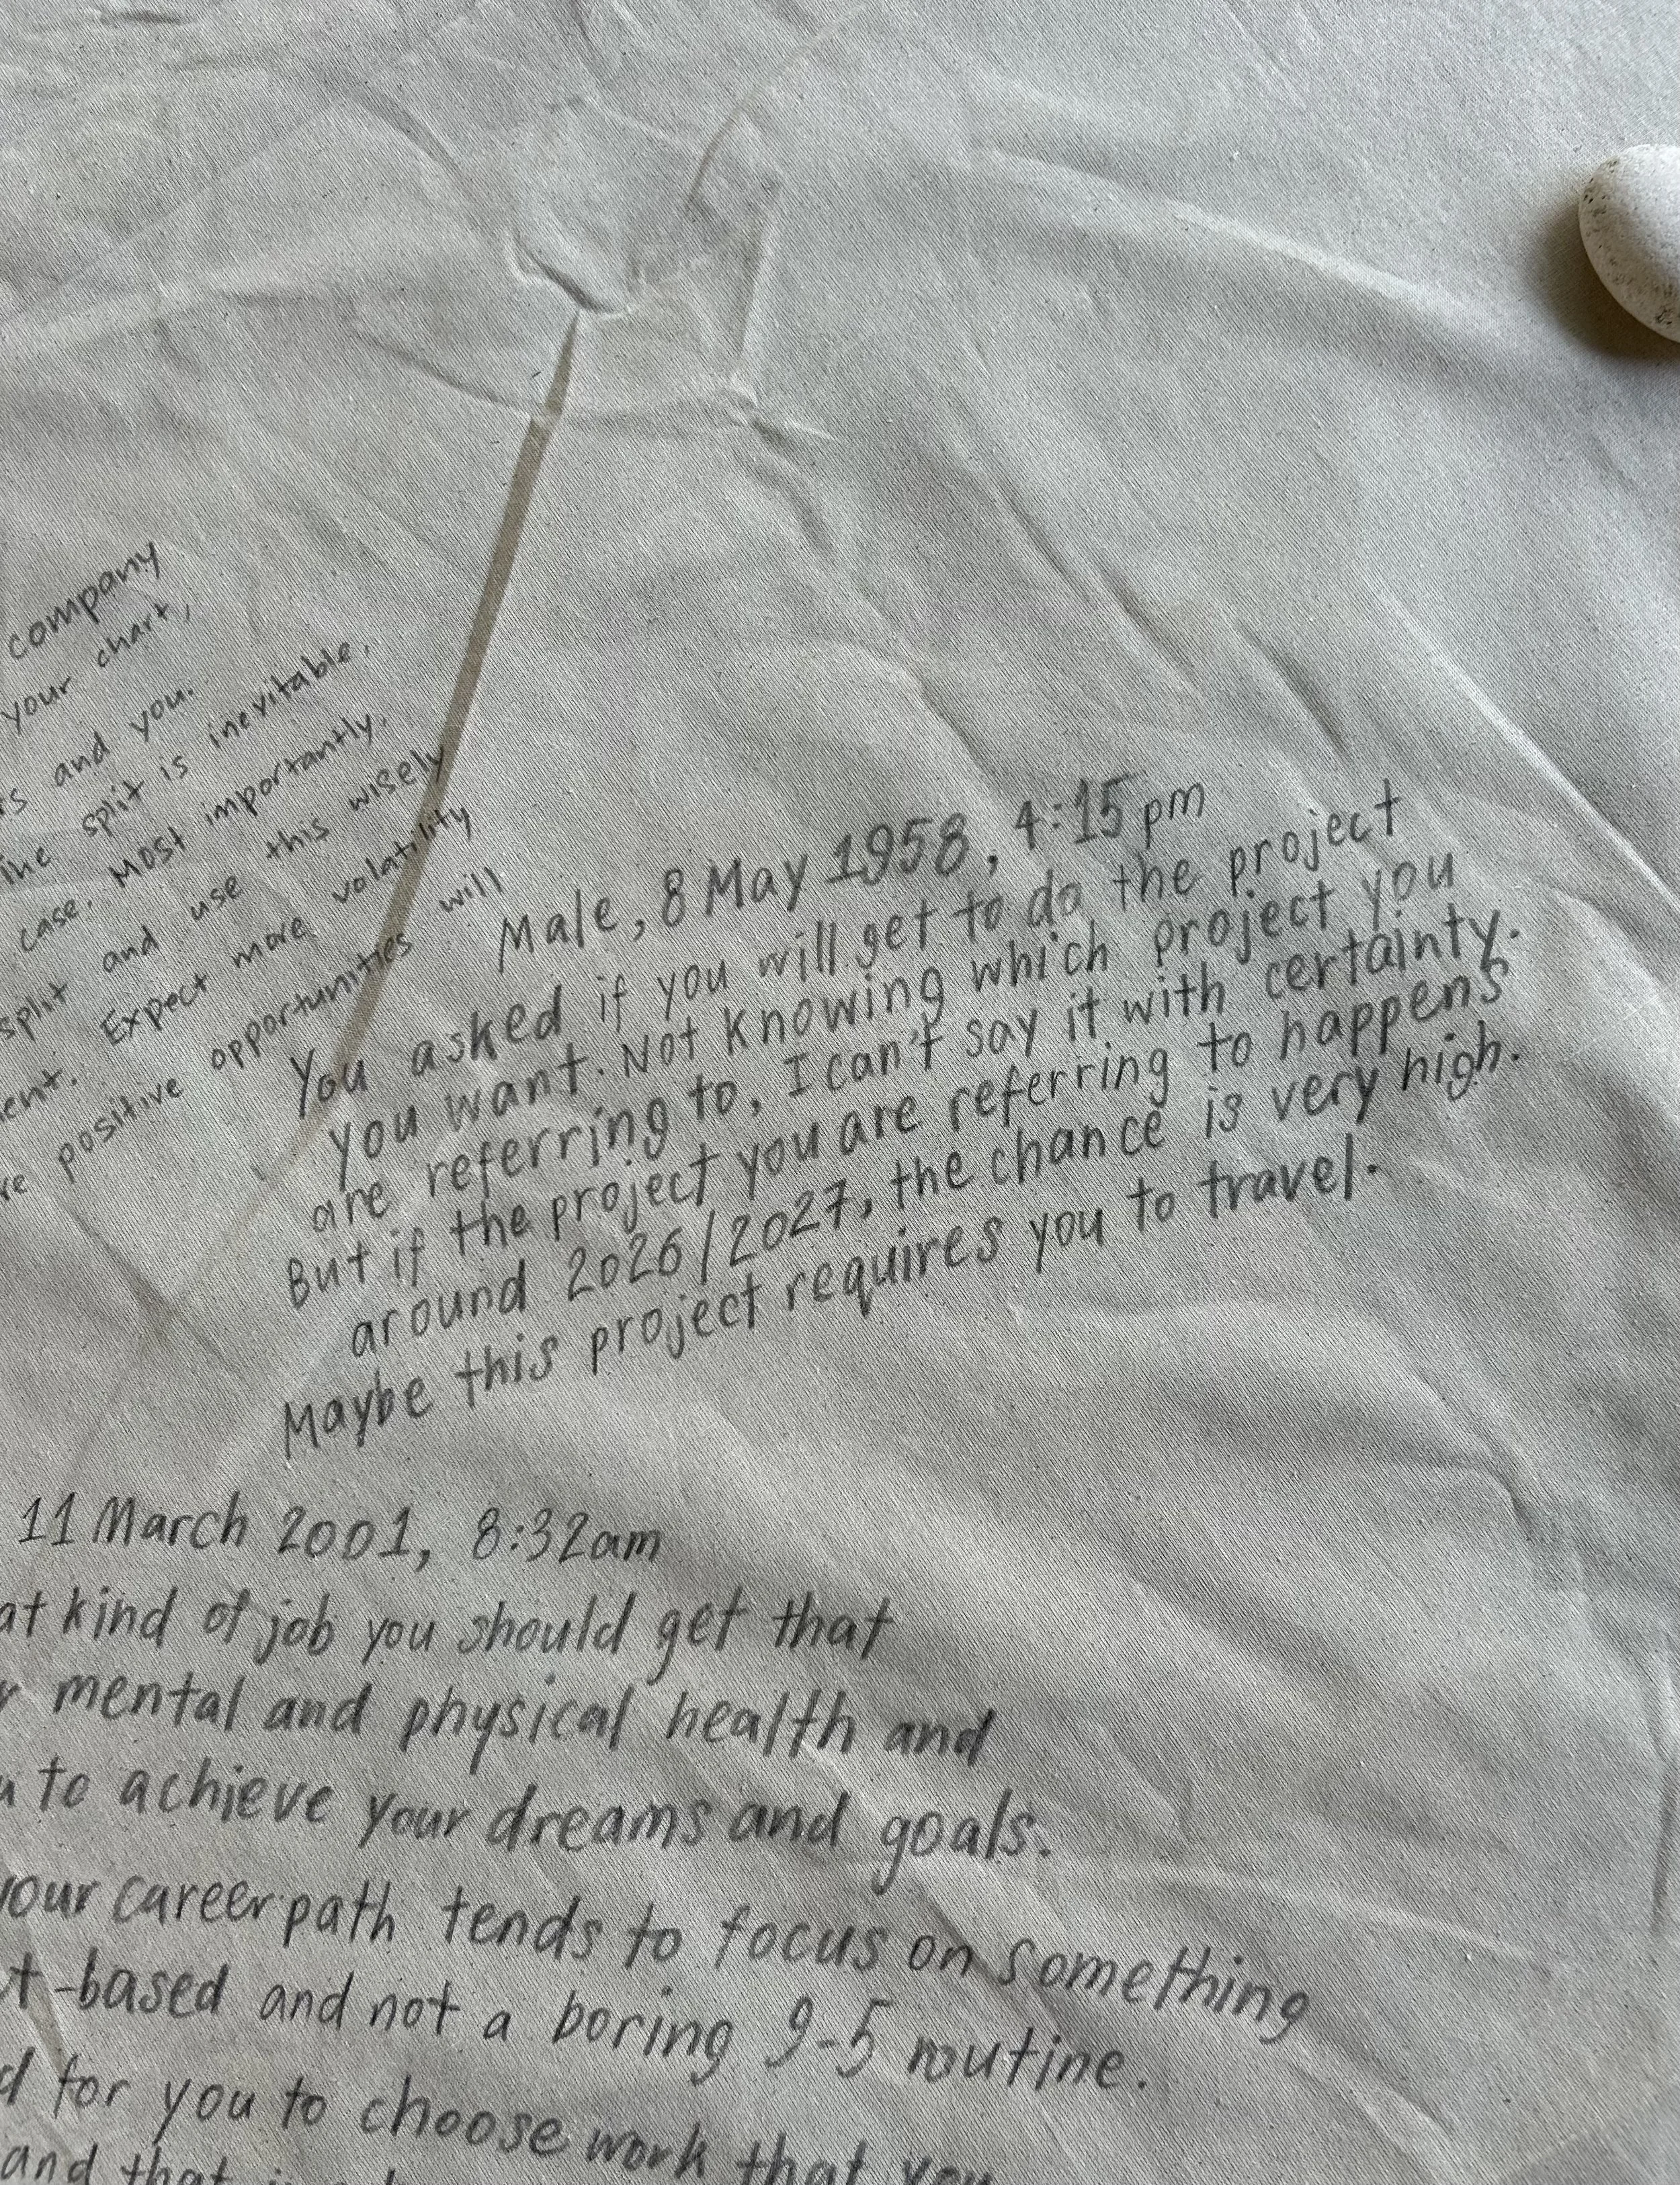 company
your chart,
and you.
split is inevitable.
case. Most importantly,
split and use this wisely
Expect more volatility
positive opportunities will
Male, 8 May 1958, 4:15pm
You asked if you will get to do the project
you want. Not knowing which project you
are referring to, I can't say it with certainty.
But if the project you are referring to happens
around 2026/2027, the chance is very high.
Maybe this project requires you to travel.
11 March 2001, 8:32am
kind of job you should get that
mental and physical health and
to achieve your dreams and goals.
your career path tends to focus on something
-based and not a boring 9-5 routine.
for you to choose work that you
and that